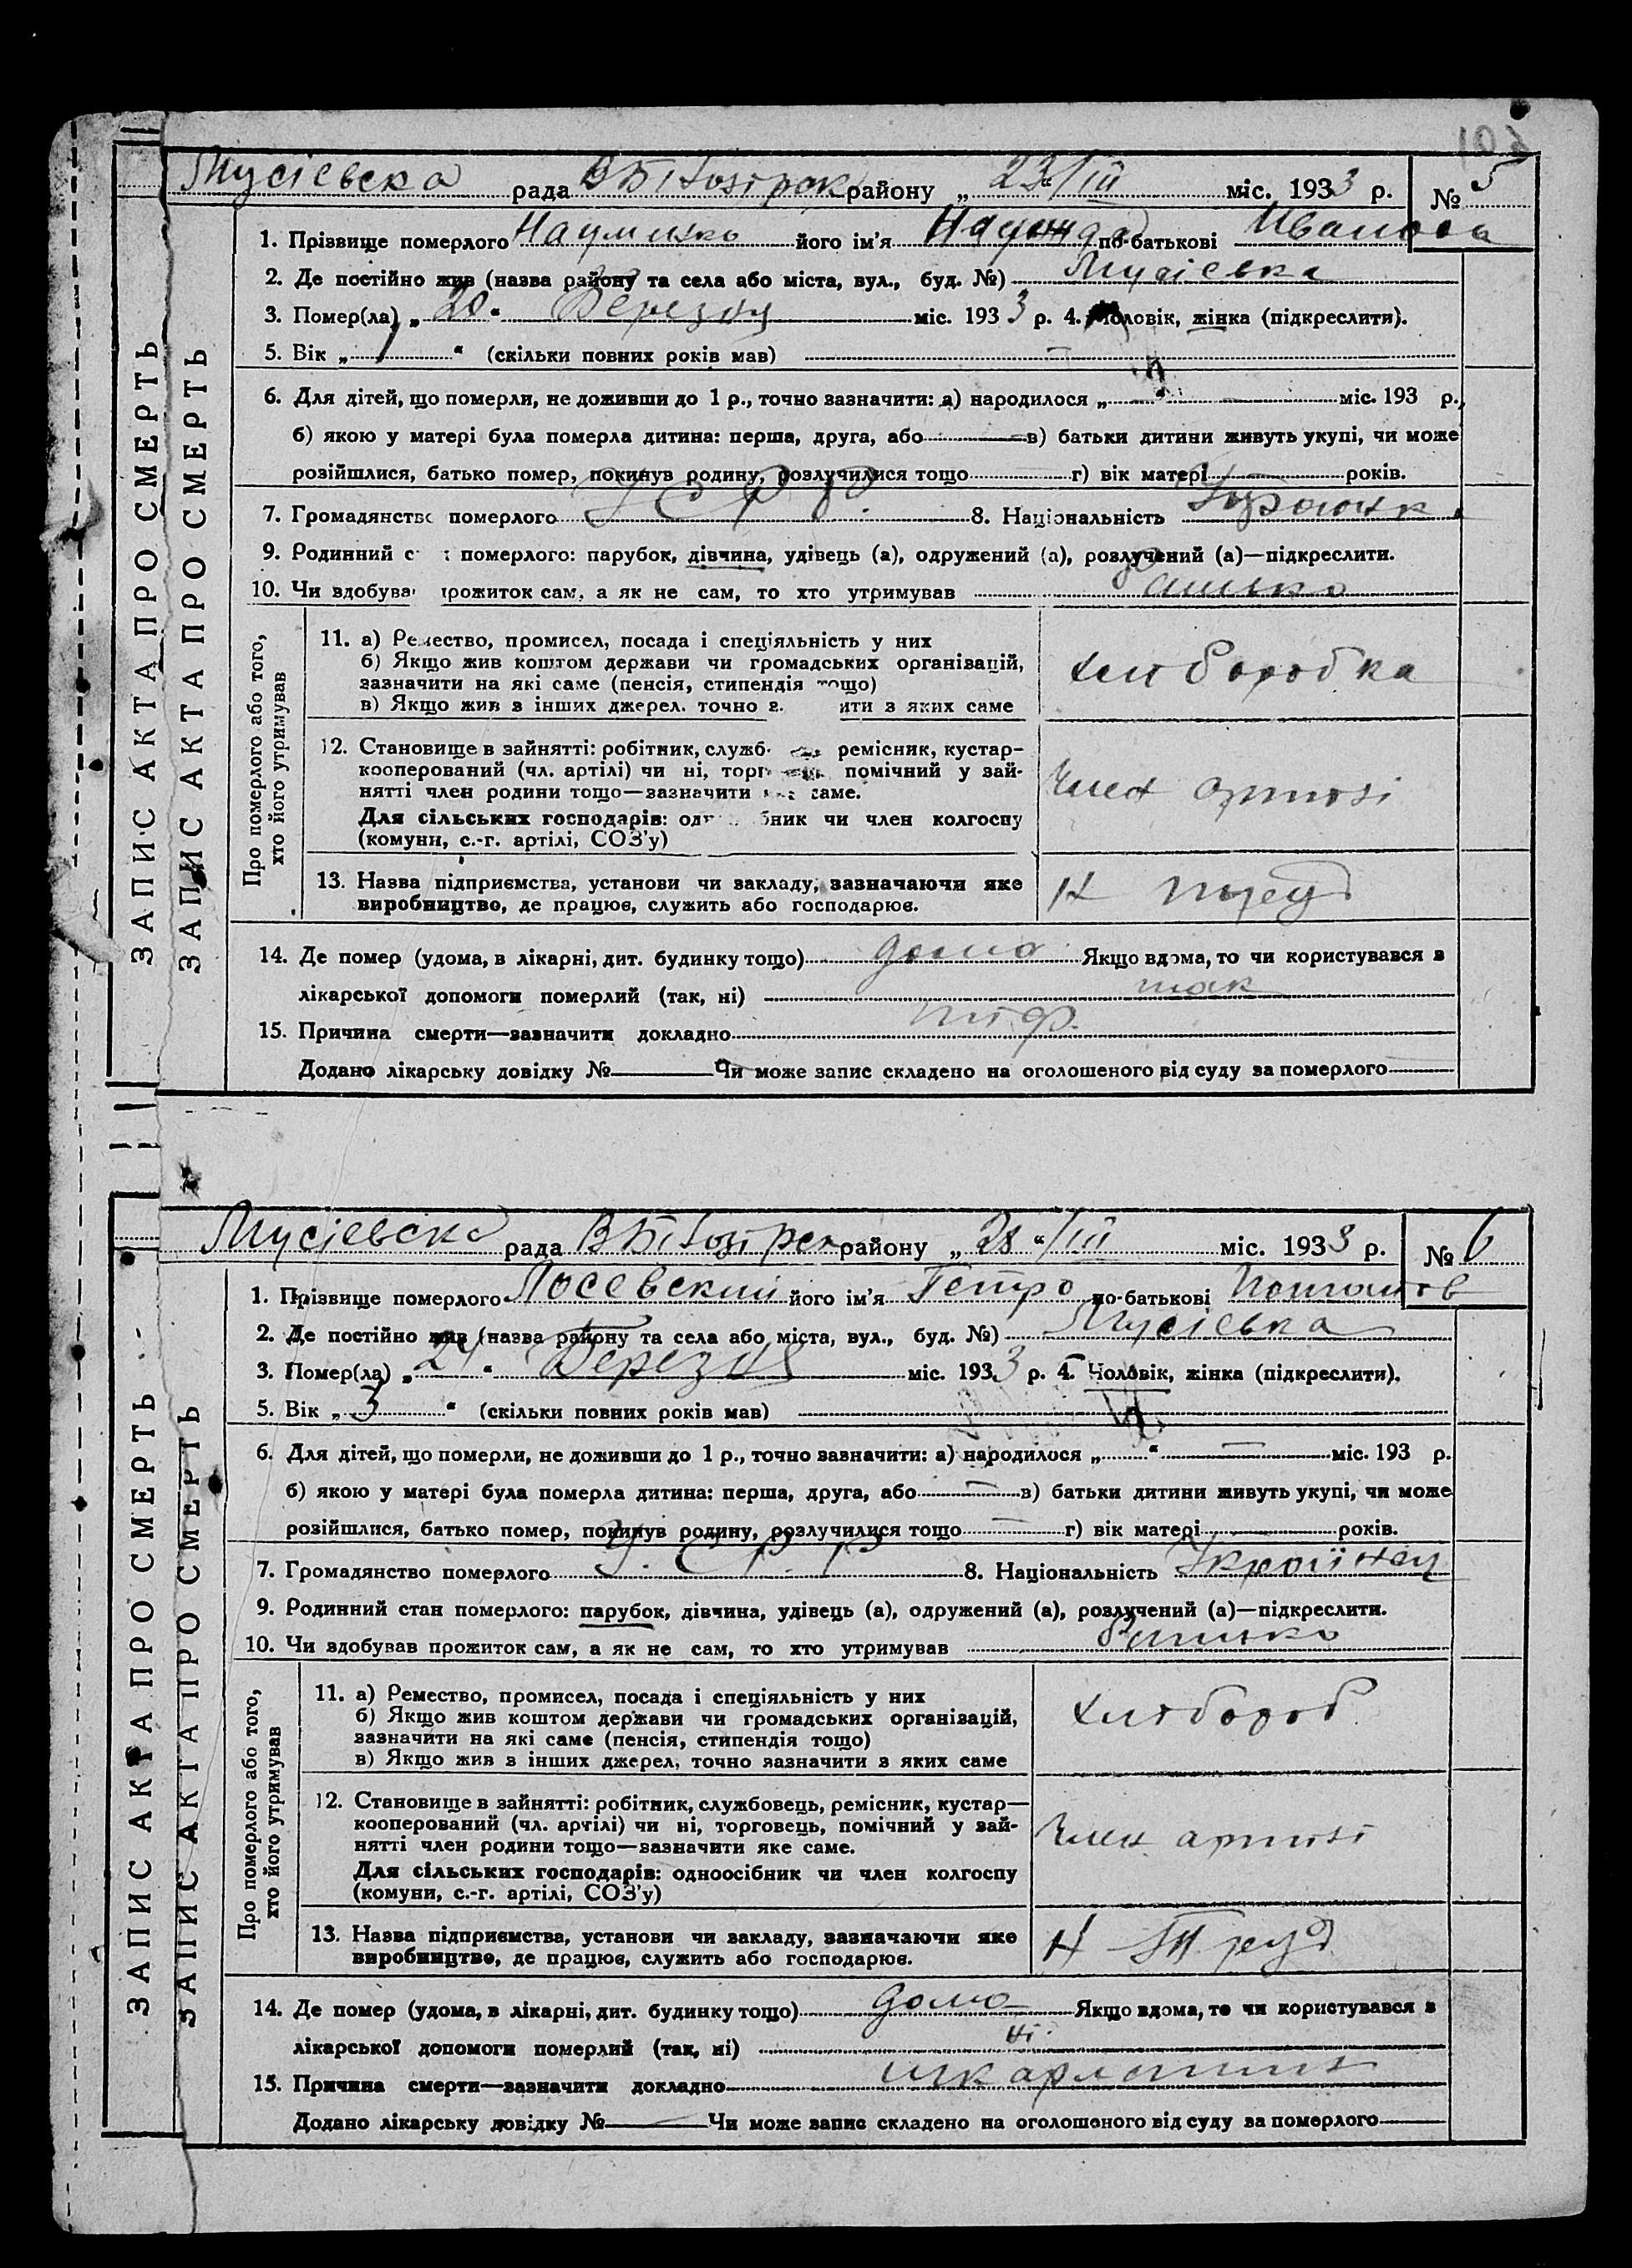 Мусієвска рада В Бі Гозірск району „ 23 “ /III міс. 1933 р. № 5
1. Прізвище померлого Наумишко його ім’я Надежда по-батькові Иванова
2. Де постійно жив (назва району та села або міста, вул., буд. №) Мусієвка
3. Помер(ла) „ 20 “ Березня міс. 1933 р. 4. Чоловік, жінка (підкреслити).
5. Вік „ 1 “ (скільки повних років мав) —
6. Для дітей, що померли, не доживши до 1 р., точно зазначити: а) народилося „ “ міс. 193 р.,
б) якою у матері була померла дитина: перша, друга, або — в) батьки дитини живуть укупі, чи може
розійшлися, батько помер, покинув родину, розлучилися тощо г) вік матері років.
7. Громадянство померлого У С Р Р. 8. Національність Україінка
9. Родинний с померлого: парубок, дівчина, удівець (а), одружений (а), розлучений (а)—підкреслити.
10. Чи вдобува прожиток сам, а як не сам, то хто утримував батько
Про померлого або того,
хто його утримував
11. а) Ремество, промисел, посада і спеціяльність у них
б) Якщо жив коштом держави чи громадських організацій,
зазначити на які саме (пенсія, стипендія тощо)
в) Якщо жив з інших джерел, точно з ити з яких саме
хліборобка
12. Становище в зайнятті: робітник, служб ремісник, кустар–
кооперований (чл. артілі) чи ні, торг помічний у зай-
нятті член родини тощо—зазначити саме.
Для сільських господарів: од бник чи член колгоспу
(комуни, с.-г. артілі, СОЗ’у)
Член артілі
13. Назва підприємства, установи чи закладу, зазначаючи яке
виробництво, де працює, служить або господарює.
Н Труд
14. Де помер (удома, в лікарні, дит. будинку тощо) дома Якщо вдома, то чи користувався з
лікарської допомоги померлий (так, ні) так
15. Причина смерти—зазначити докладно тіф.
Додано лікарську довідку № — Чи може запис складено на оголошеного від суду за померлого
ЗАПИС АКТА ПРО СМЕРТЬ
ЗАПИС АКТА ПРО СМЕРТЬ
Мусієвска рада В Бі Гозірск району „ 28 “ /III міс. 1933 р. № 6
1. Прізвище померлого Лосевский його ім’я Петро по-батькові Потапов
2. Де постійно жив (назва району та села або міста, вул., буд. №) Мусієвка
3. Помер(ла) „ 24 “ Березня міс. 1933 р. 4. Чоловік, жінка (підкреслити).
5. Вік „ 3 “ (скільки повних років мав)
6. Для дітей, що померли, не доживши до 1 р., точно зазначити: а) народилося „ “ — міс. 193 р.
б) якою у матері була померла дитина: перша, друга, або — в) батьки дитини живуть укупі, чи може
розійшлися, батько помер, покинув родину, розлучилися тощо — г) вік матері років.
7. Громадянство померлого У. С. Р. Р 8. Національність Українец
9. Родинний стан померлого: парубок, дівчина, удівець (а), одружений (а), розлучений (а)—підкреслити.
10. Чи вдобував прожиток сам, а як не сам, то хто утримував батько
Про померлого або того,
хто його утримував
11. а) Ремество, промисел, посада і спеціяльність у них
б) Якщо жив коштом держави чи громадських організацій,
зазначити на які саме (пенсія, стипендія тощо)
в) Якщо жив з інших джерел, точно зазначити з яких саме
хлібороб
12. Становище в зайнятті: робітник, службовець, ремісник, кустар—
кооперований (чл. артілі) чи ні, торговець, помічний у зай-
нятті член родини тощо—зазначити яке саме.
Для сільських господарів: одноосібник чи член колгоспу
(комуни, с.-г. артілі, СОЗ’у)
Член артілі
13. Назва підприємства, установи чи закладу, зазначаючи яке
виробництво, де працює, служить або господарює.
Н Труд
14. Де помер (удома, в лікарні, дит. будинку тощо) дома Якщо вдома, то чи користувався з
лікарської допомоги померлий (так, ні) ні
15. Причина смерти—зазначити докладно шкарлатина
Додано лікарську довідку № — Чи може запис складено на оголошеного від суду за померлого
ЗАПИС АКТА ПРО СМЕРТЬ
ЗАПИС АКТА ПРО СМЕРТЬ